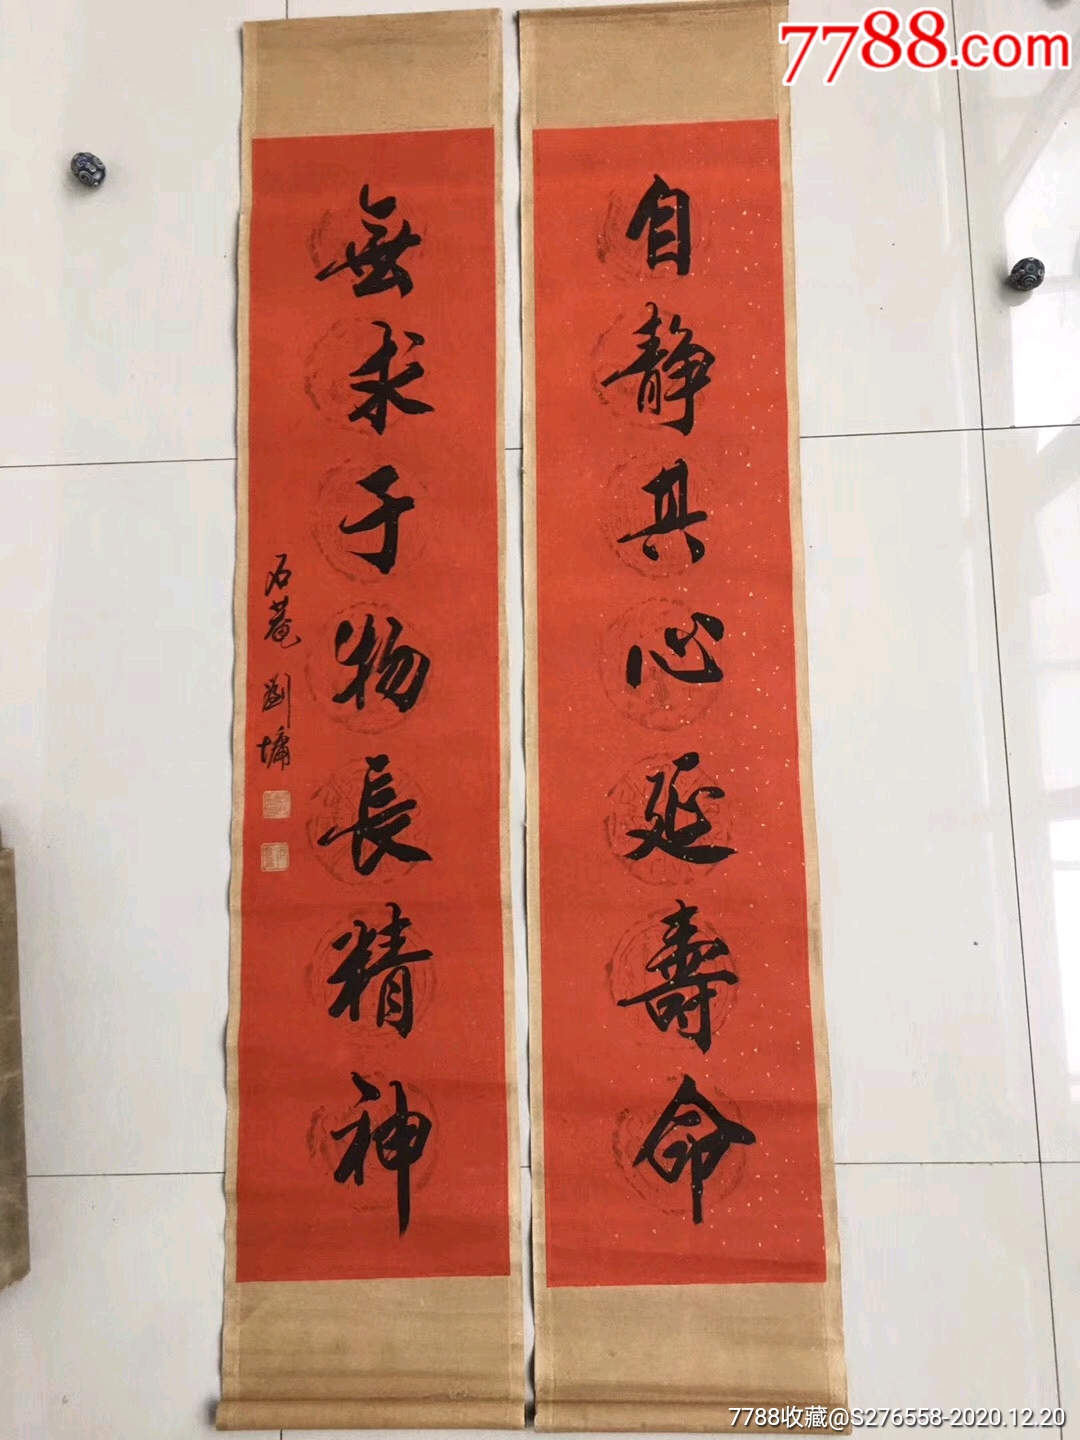 7788.com
自静其心延壽命
無求于物長精神
石菴 劉墉
7788收藏@S276558-2020.12.20